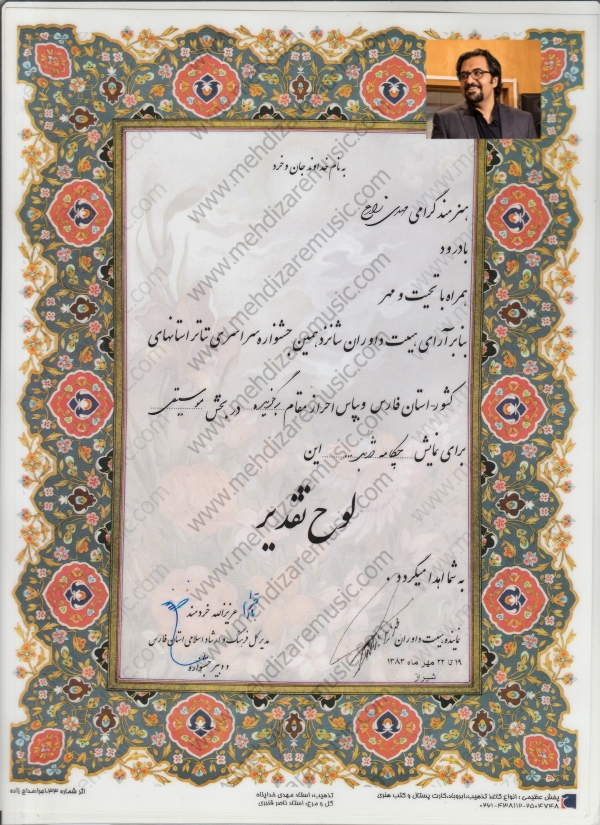 به نام خداوند جان و خرد
هنرمند گرامی مهدی زارع
با درود
همراه با تحیت و مهر
بنابر آرای هیئت داوران شانزدهمین جشنواره سراسری تئاتر استانهای
کشور-استان فارس و بپاس احراز مقام برگزیده در بخش موسیقی
برای نمایش چکامه شب این
لوح تقدیر
به شما اهدا میگردد.
نماینده هیئت داوران
۱۹ تا ۲۲ مهر ماه ۱۳۸۳
شیراز
عزیزالله خردمند
مدیر کل فرهنگ و ارشاد اسلامی استان فارس
و دبیر جشنواره
پخش عظیمی : انواع کاغذ تذهیب، ابروباد، کارت پستال و کتب هنری
تذهیب: استاد مهدی خداپناه
گل و مرغ: استاد ناصر قنبری
اثر شماره ۳۳
www.mehdizaremusic.com